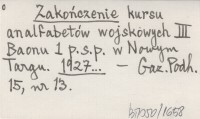 Zakończenie kursu
analfabetów wojskowych III
Baonu 1 p.s.p. w Nowym
Targu. 1927... — Gaz. Podh.
15, nr 13.
b7050/1658